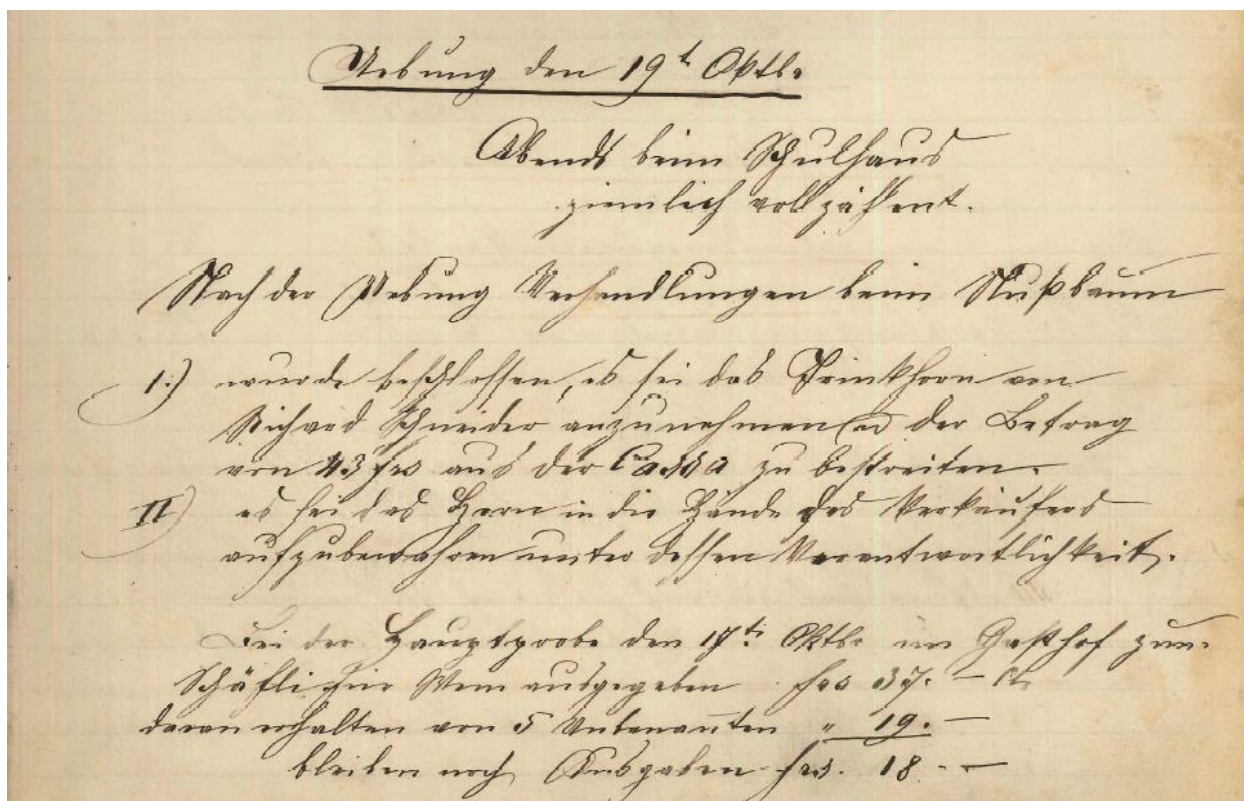 Uebung den 19t Oktb.
Abends beim Schulhaus
ziemlich vollzählent.
Nach der Uebung Verhandlungen beim Nußbaum
1.) wurde beschlossen, es sei das Trinkhorn von
Richard Schneider anzunehmen u der Betrag
von 43 frs aus der Cassa zu bestreiten.
II) es sei das Horn in die Hände des Verkäufers
aufzubewahren unter dessen Verantwortlichkeit.
Bei der Hauptprobe den 17t. Oktbr im Gasthof zum
Schäfli für Wein ausgegeben frs 37. –
daran erhalten von 5 Unbenanten " 19. –
bleiben noch Ausgaben frs. 18. –